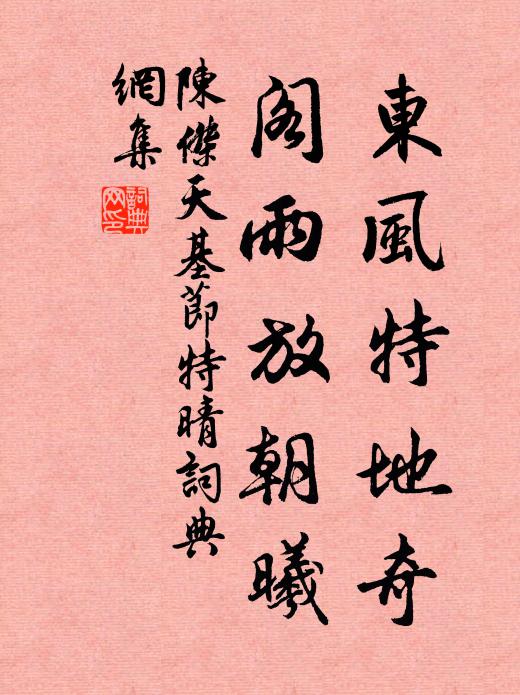 東風特地奇
閣雨放朝曦
陳傑天基節特晴詞典
網集
詞典
網印